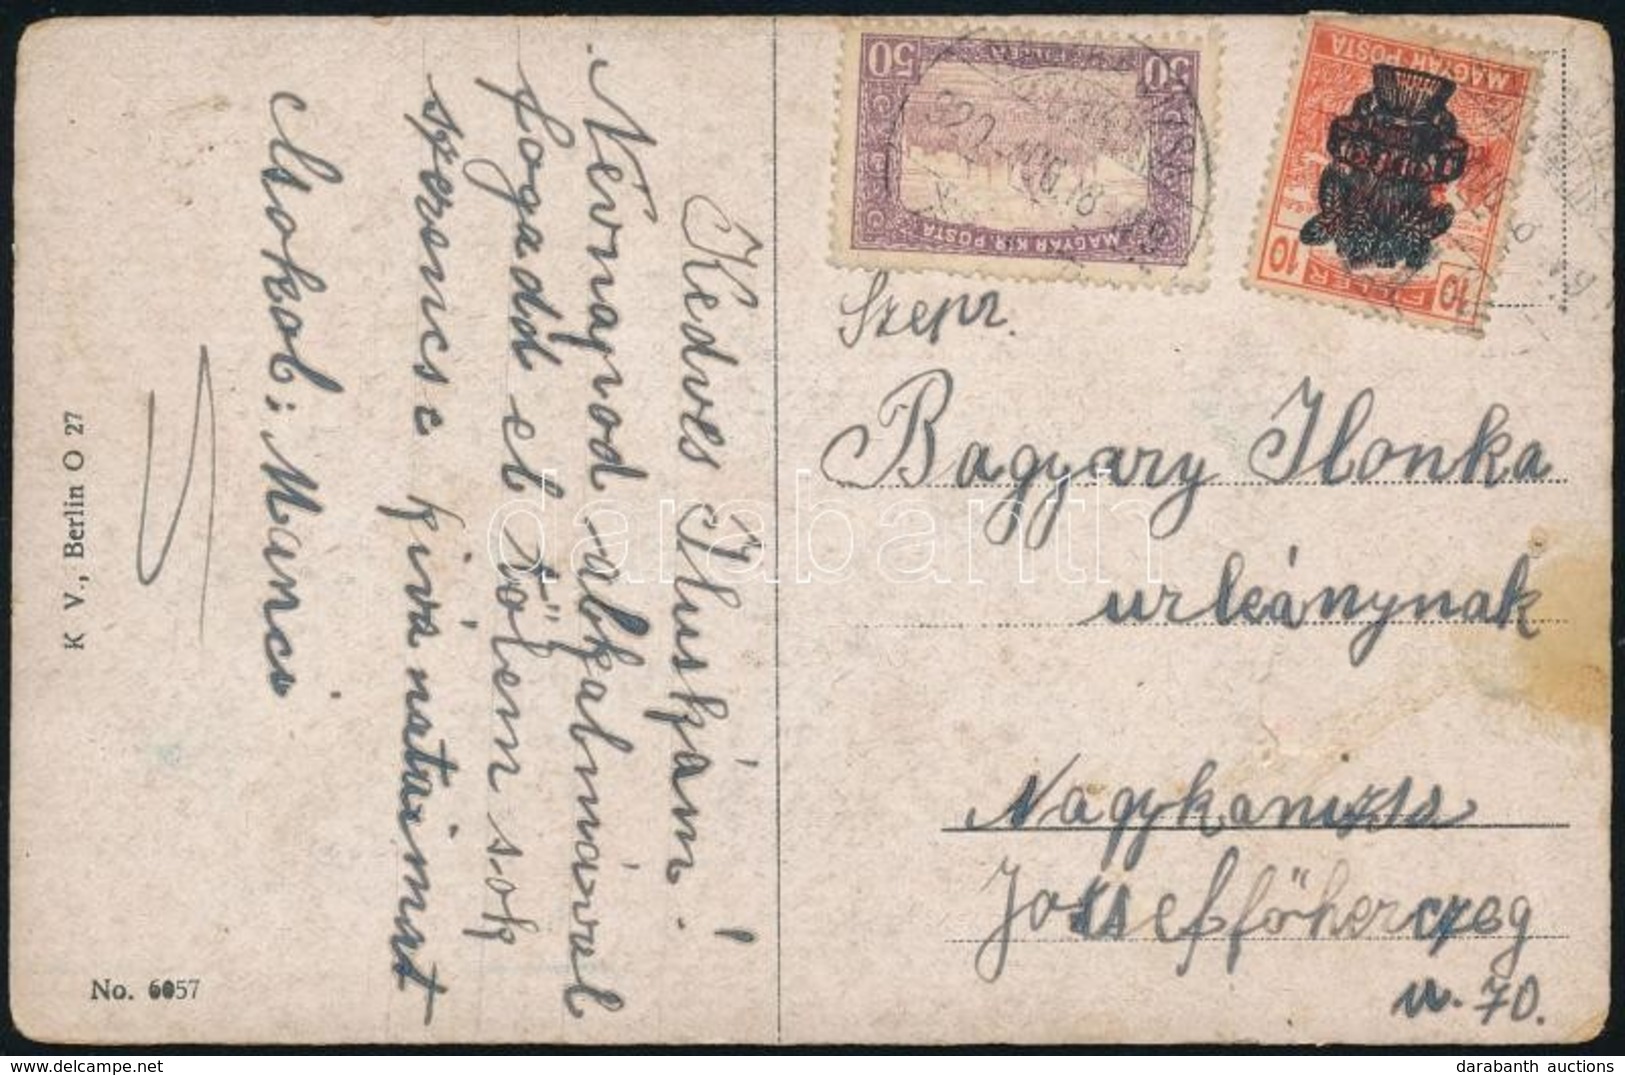 Kedves Iluskám!
Névnapod alkalmával
fogadd el tőlem sok
szerencse kivánataimat
Csokol: Manci
K V., Berlin O 27
No. 6057
50
50
MAGYAR KIR. POSTA
920
18
MAGYAR POSTA
FILLÉR
10
10
Szepr.
Bagyary Ilonka
urleánynak
Nagykanizsa
Jozseffőherczeg
u. 70.
darabanth
darabanth auctions